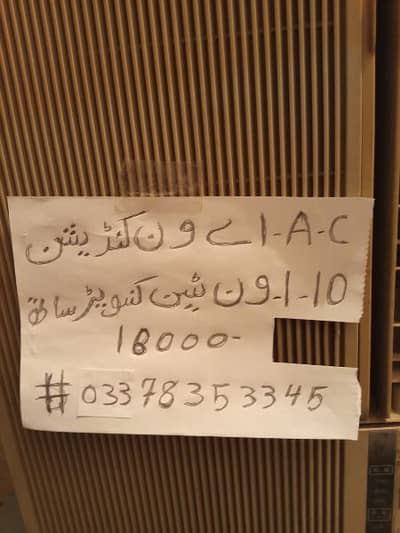 A-C-اے ون کنڈیشن
1-10-ون ٹین کنویٹر ساتھ
18000-
# 03378353345